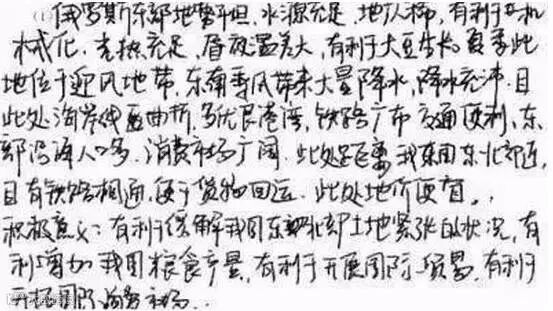 (1)俄罗斯东部地势平坦,水源充足,地广人稀,有利于机
械化,光热充足,昼夜温差大,有利于大豆生长,夏季此
地位于迎风地带,东南季风带来大量降水,降水充沛.且
此处海岸线曲折,多优良港湾,铁路广布 交通便利、东
部沿海人口多,消费市场广阔.此处距离我国东北部近,
且有铁路相通,便于货物回运.此处地价便宜.
积极意义:有利于缓解我国东北部土地紧张的状况,有
利增加我国粮食产量,有利于开展国际贸易,有利于
开拓国际市场..